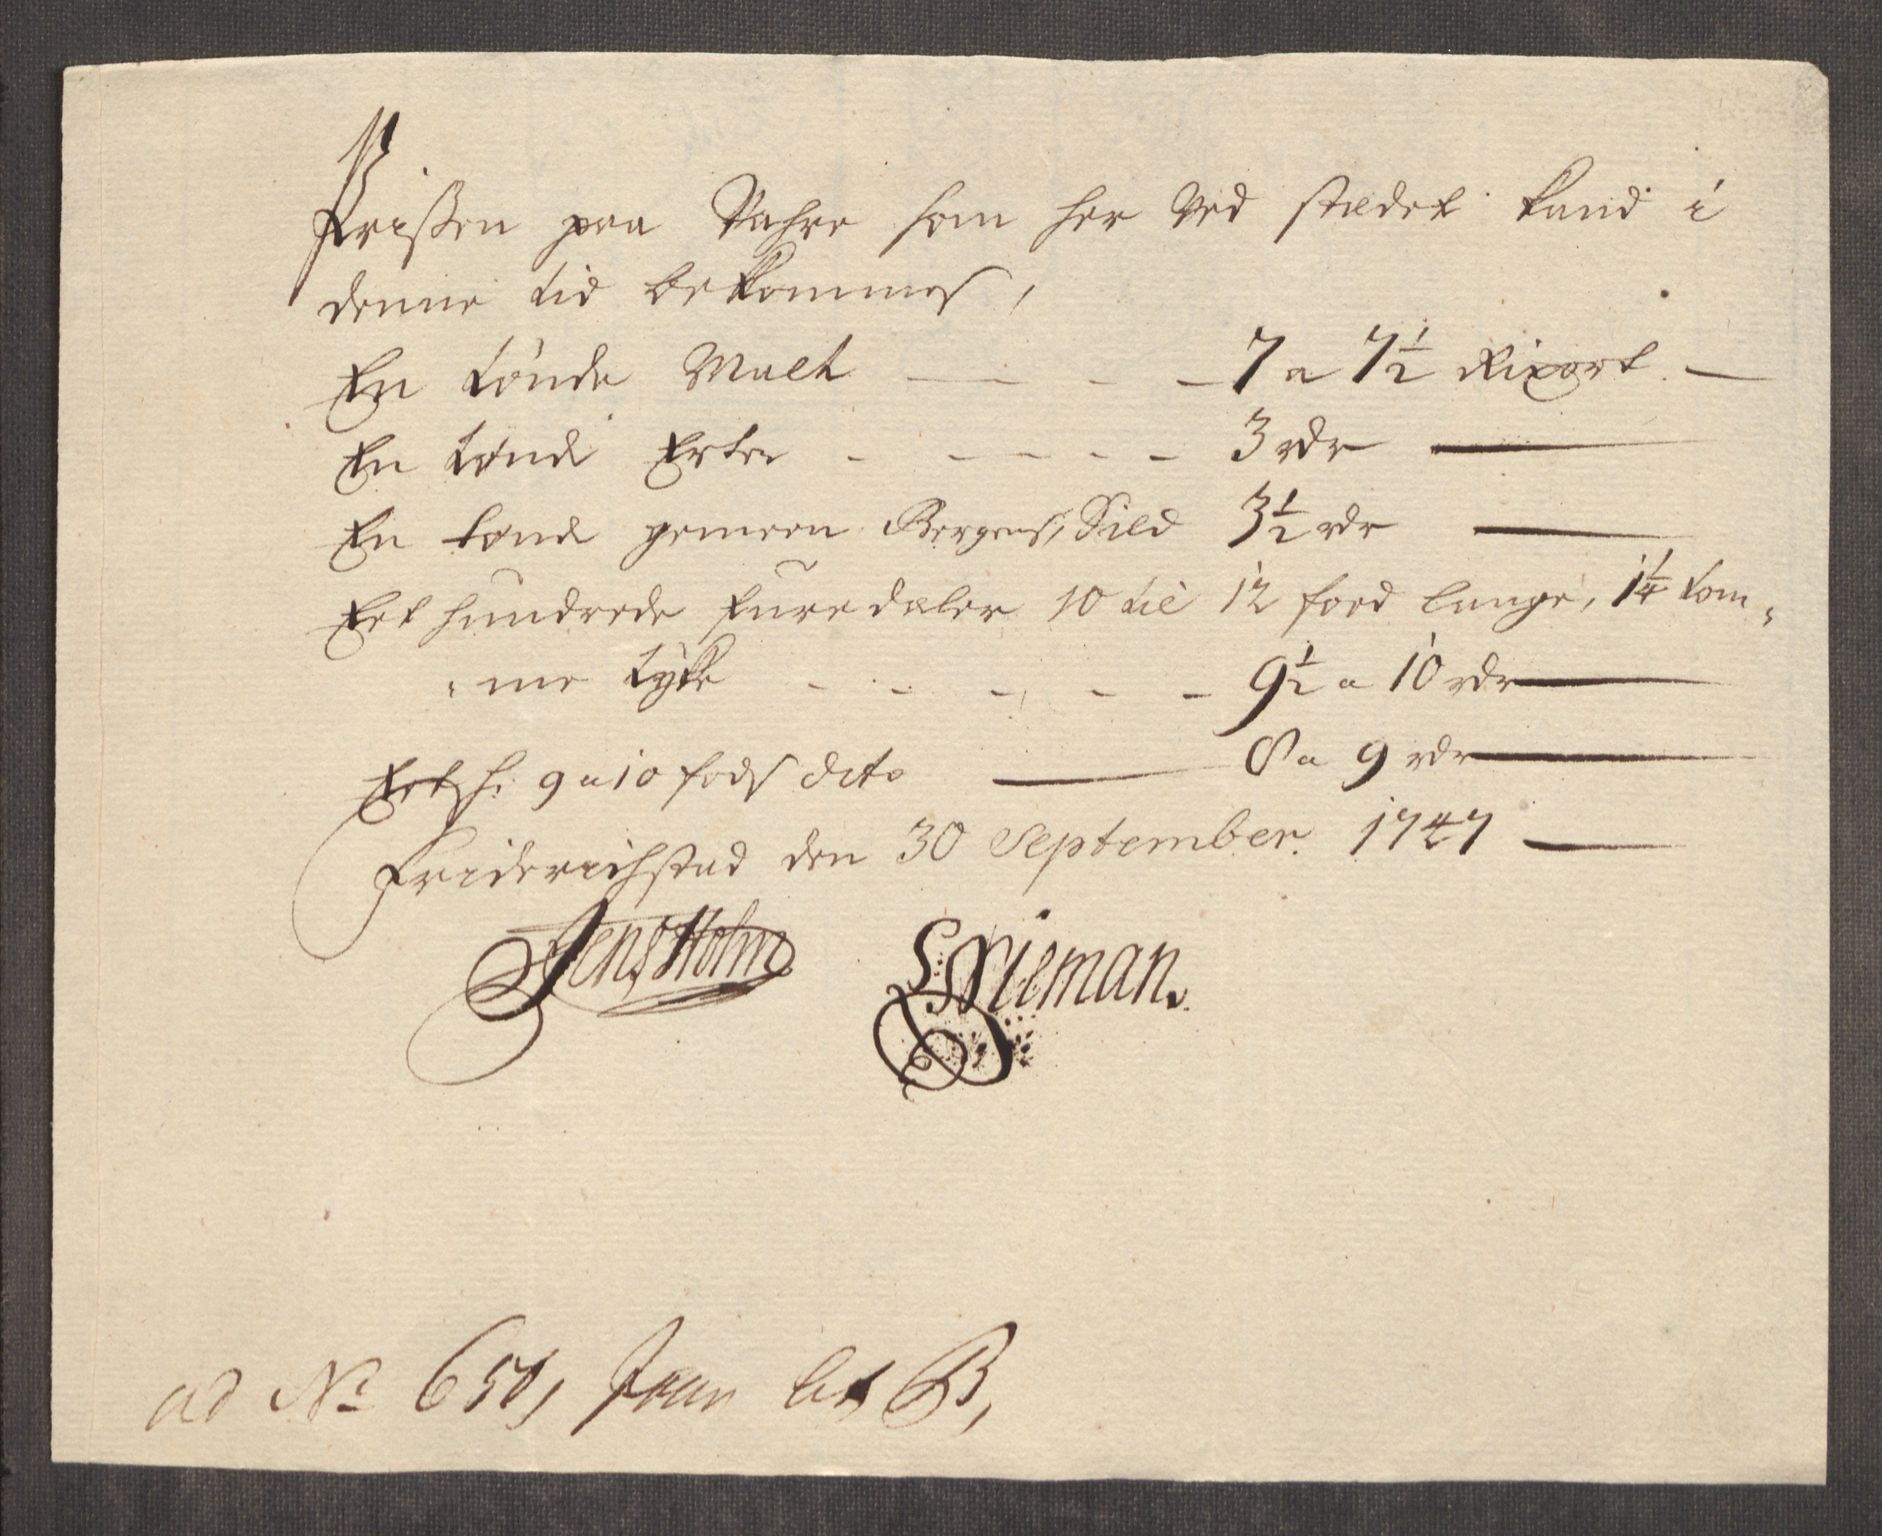 Prissen paa Vahre som her ved stædet kand i
denne tid bekommes,
En tønde Malt - - - - 7 a 7½ Rixort. -
En tønde Erter - - - - - 3 rdr -
En tønde gemeen Bergens, Sild 3½ rdr -
Eet hundrede furre dæler 10 til 12 foed lange, 1¼ tom-
me tyke - - - - - 9½ a 10 rdr -
Eet h: 9 a 10 fods dito - 8 a 9 rdr -
Friderichstad den 30 September. 1747 -
Jens Holm S: Nieman.
ad No 650, lit B,